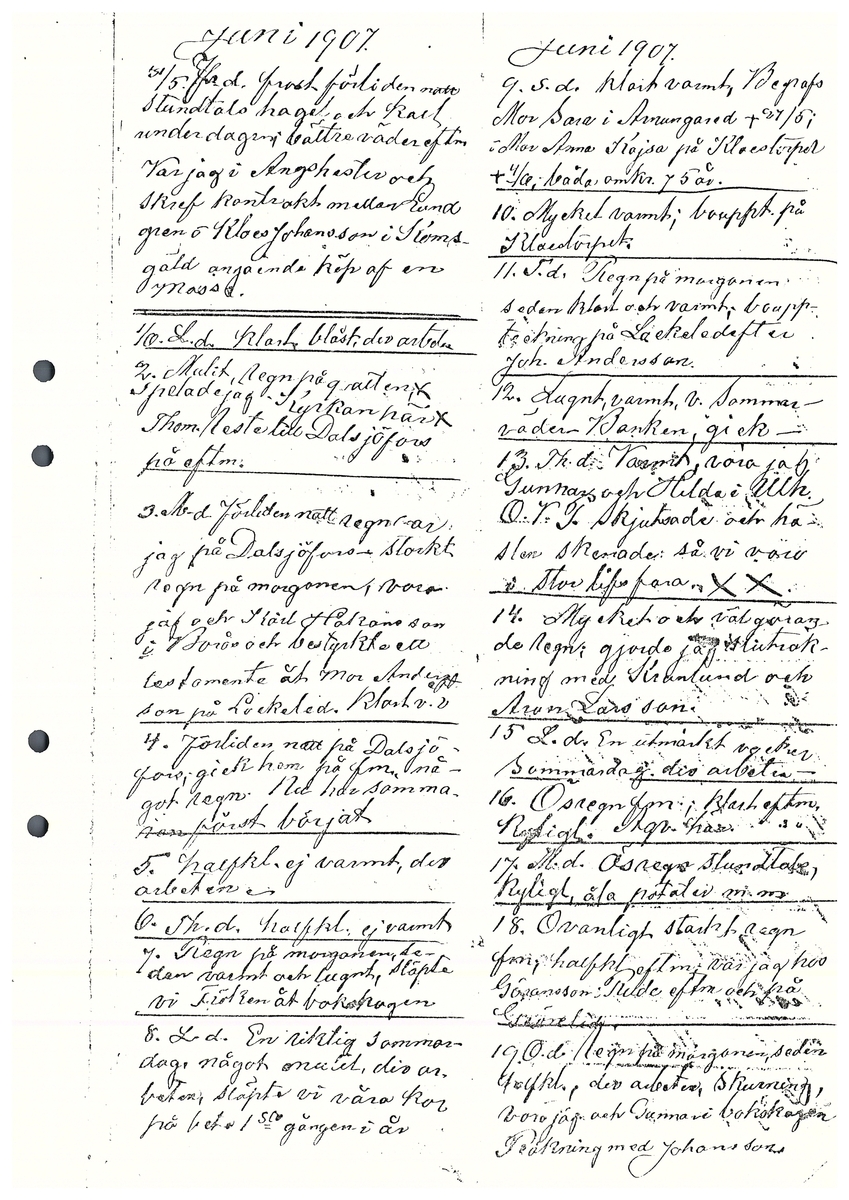 Juni 1907.
31/5. Frd. frost förliden natt
stundtals hagel och kallt
under dagen; bättre väder eftm
Var jag i Ängshester och
skref kontrakt mellan Lund
gren o Kloes Johansson i Röms-
gäld angående köp af en
mosse.
1/6. L.d. Klart, blåst; div arbeten
2. Mulit, regn på qvällen X
Spelade jag. Kyrkan här X
Thom. reste till Dalsjöfors
på eftm.
3. M.d Förliden natt regn var
jag på Dalsjöfors - starkt
regn på morgonen, voro
jag och Karl Håkansson
i Borås och bestyrkte ett
testamente åt Mor Anders
son på Lockeled. Klart v. v
4. Förliden natt på Dalsjö-
fors; gick hem på fm. nå-
got regn. Nu har somma-
ren först börjat
5. halfkl. ej varmt, div
arbeten
6. Th.d. halfkl. ej varmt
7. Regn på morgonen, se-
dan varmt och lugnt, släpte
vi Fisken åt bokskogen
8. L.d. En riktig sommar-
dag, något mulit, div ar-
beten, släpte vi våra kor
på bete 1sta gången i år
Juni 1907.
9. S.d. Klart varmt, Begrafs
Mor Sara i Arnungared + 27/5;
o Mor Anna Kajsa på Kloestorpet
+ 4/6; båda omkr. 75 år.
10. Mycket varmt; bouppt. på
Kloestorpet.
11. T.d. Regn på morgonen
sedan klart och varmt, boupp-
teckning på Lockeled efter
Joh. Andersson.
12. Lugnt, varmt, v. Sommar-
väder Banken, gick
13. Th.d. Varmt, voro jag
Gunnar och Hilda i Ulh.
O. V. G. skjutsade och hä-
sten skenade så vi voro
i stor lifsfara. X X.
14. Mycket och välgöran
de regn; gjorde jag sluträk-
ning med Kranlund och
Aron Larsson.
15 L.d. En utmärkt vacker
sommardag. div arbeten
16. Ösregn fm; klart eftm.
Kyligt. Aqv. här
17. M.d. Ösregn stundtals,
Kyligt, åla potater m.m
18. Ovanligt starkt regn
fm; halfkl eftm; var jag hos
Göransson; Rude eftm och på
19. O.d. Regn på morgonen, seden
halfkl., div arbeten, skurning,
voro jag och Gunnar i bokskogen
Räkning med Johansson